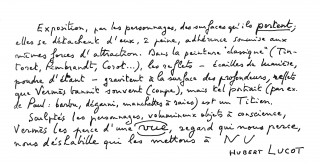 Exposition, par les personnages, des surfaces qu'ils portent;
elles se détachent d'eux, à peine, adhérence soumise aux
mêmes forces d'attraction. Dans la peinture "classique" (Tin-
toret, Rembrandt, Corot...), les reflets — écailles de lumière,
poudre d'étant — gravitent à la surface des profondeurs, reflets
que Vermès bannit souvent (coupe), mais tel portrait (par ex.
de Paul: barbu, dégarni, manchettes à raies) est un Titien.
Sculptés les personnages, volumineux objets à conscience,
Vermès les perce d'une vue, regard qui nous perce,
nous déshabille qui les mettons à NU
HUBERT LUCOT